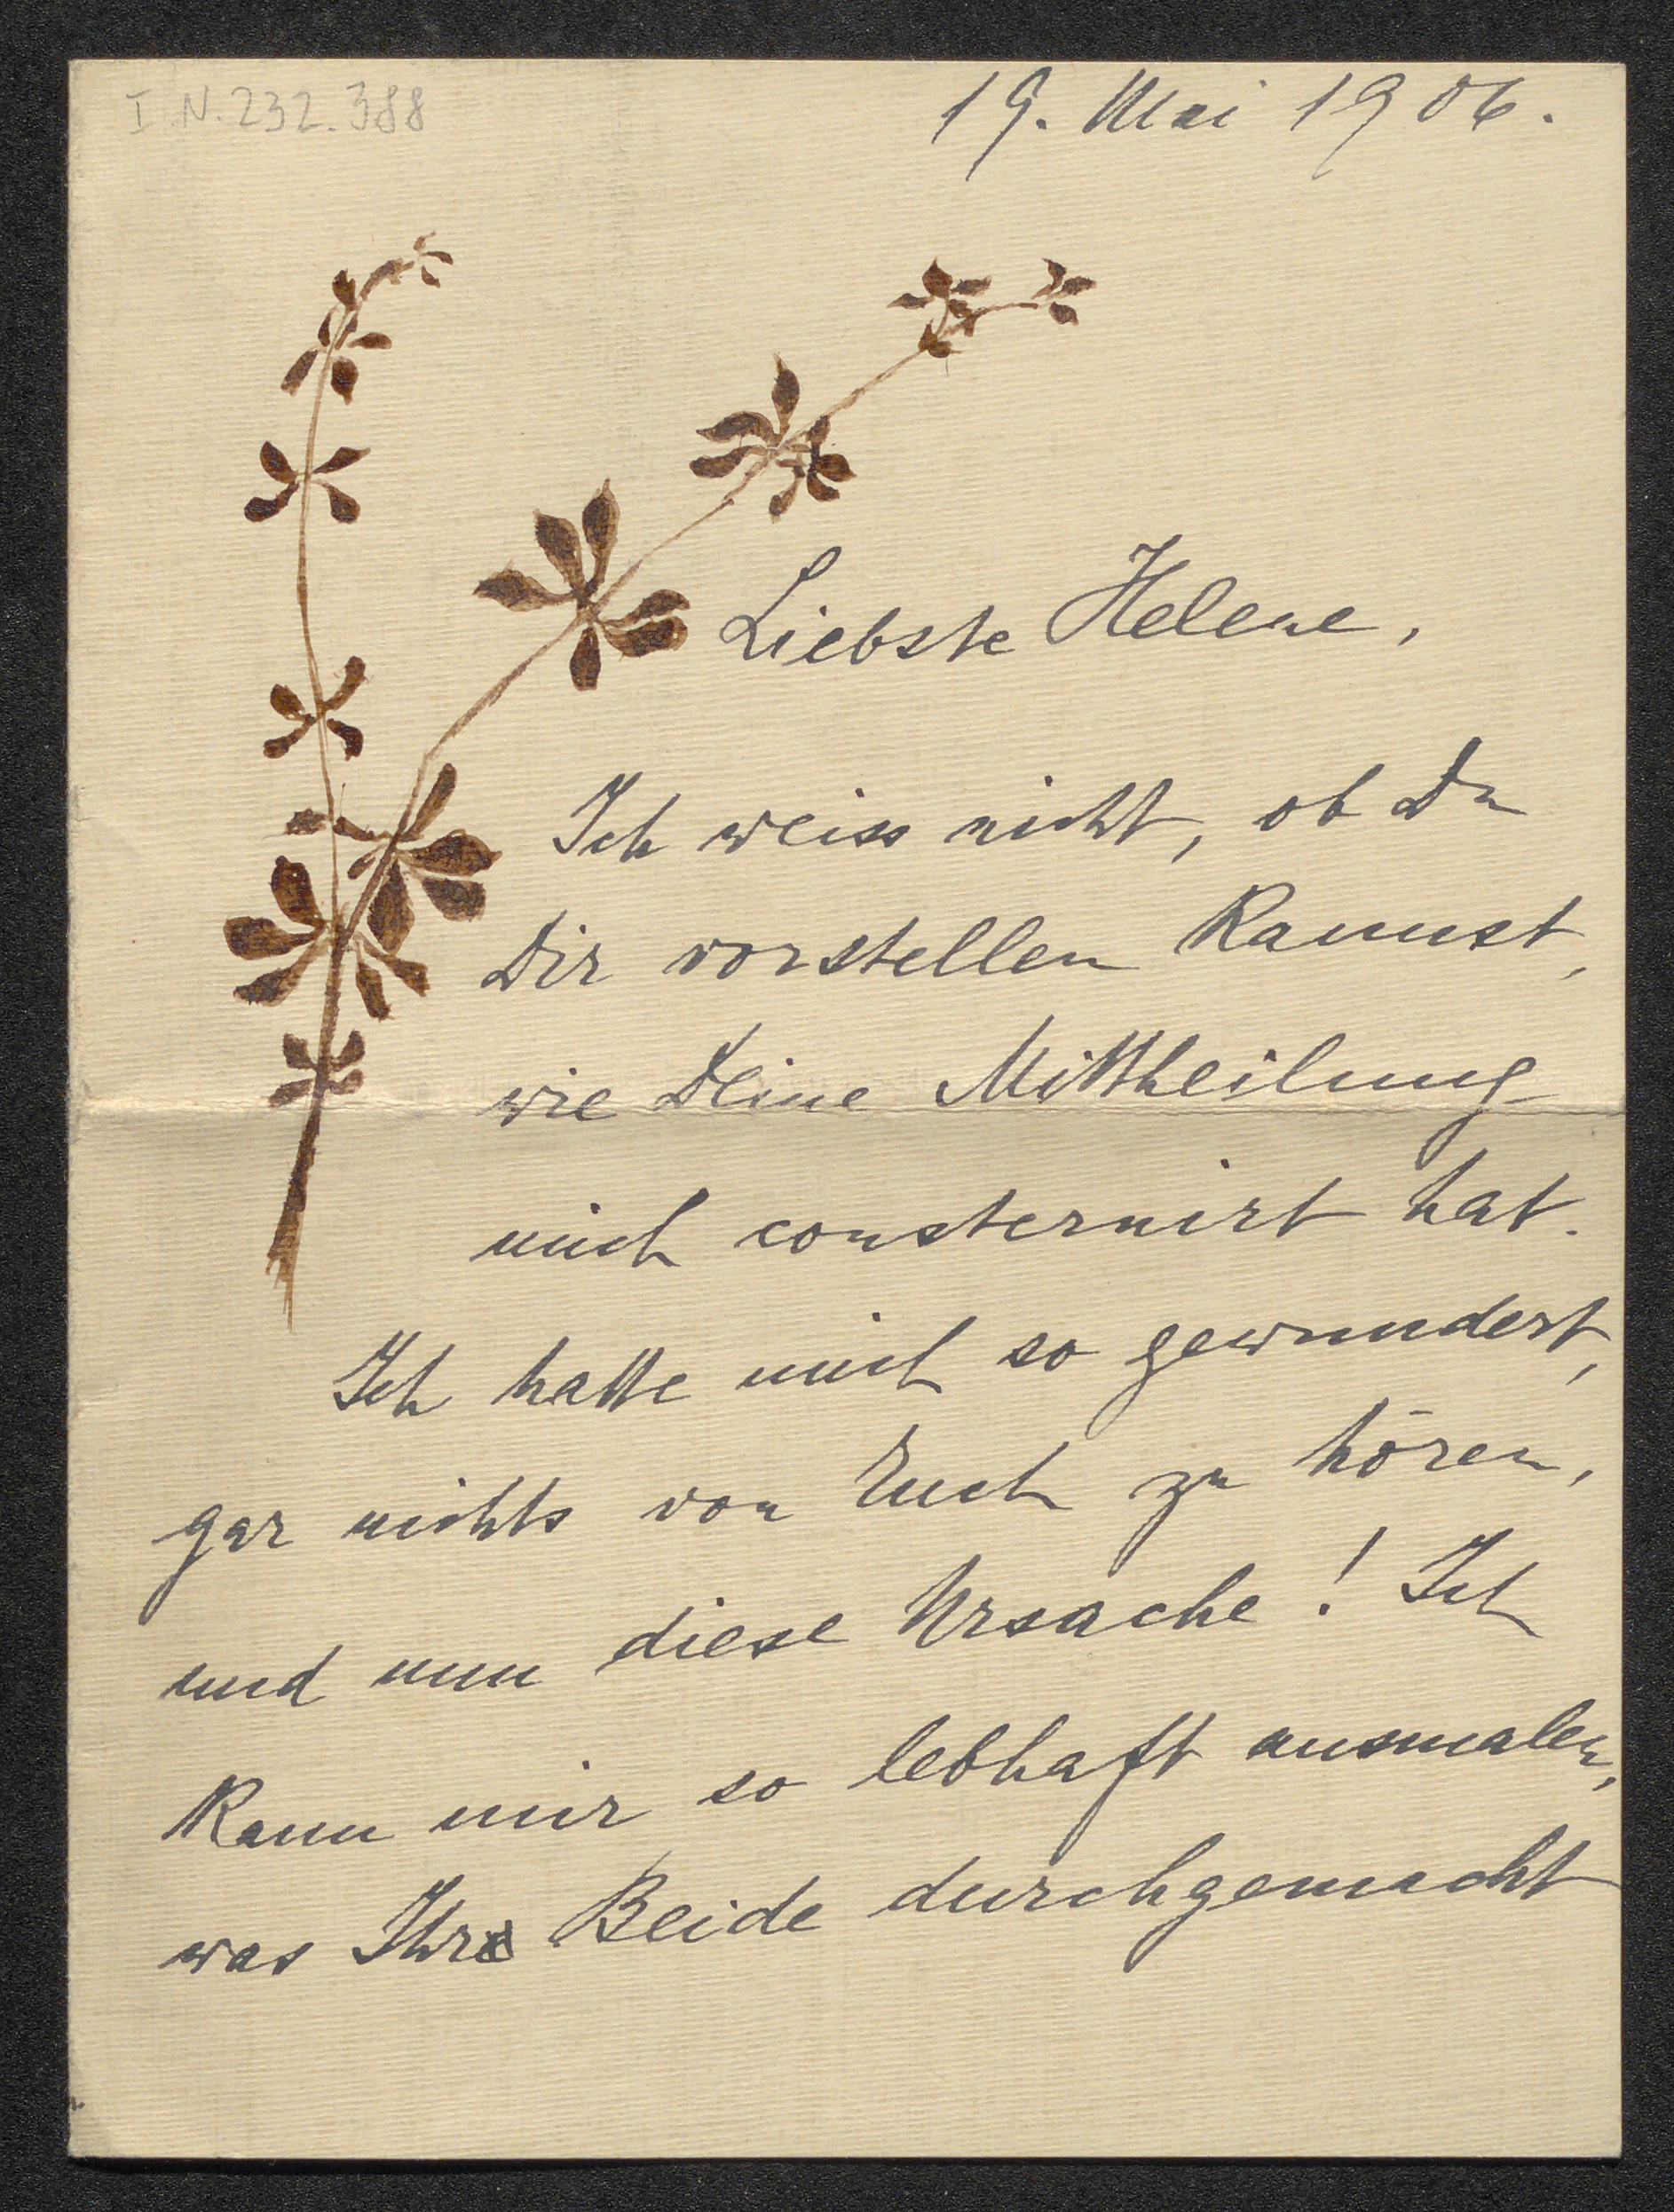 I.N.232.388
19. Mai 1906.
Liebste Helene,
Ich weiss nicht, ob Du
Dir vorstellen kannst,
wie Deine Mittheilung
mich consternirt hat.
Ich hatte mich so gewundert,
gar nichts von Euch zu hören,
und nun diese Ursache! Ich
kann mir so lebhaft ausmalen,
was Ihr Beide durchgemacht